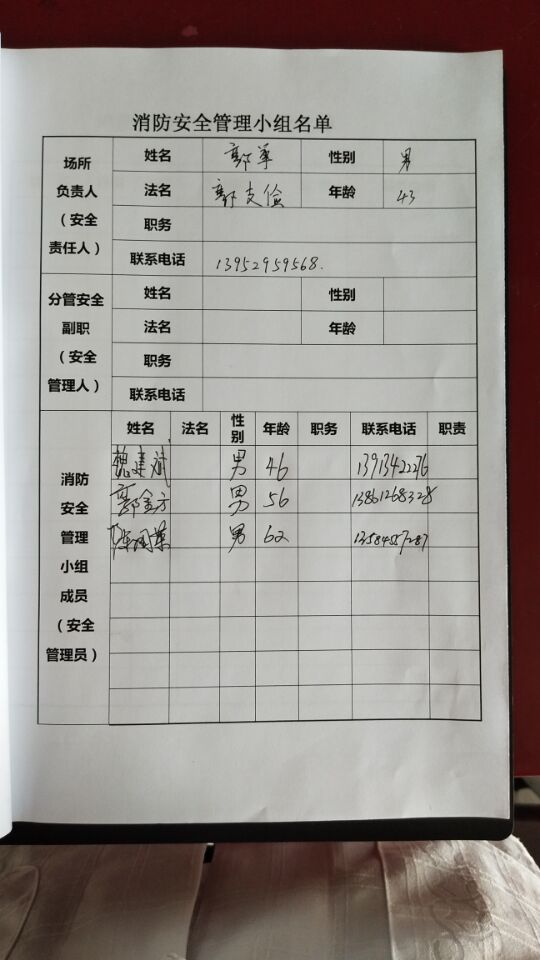 消防安全管理小组名单
场所负责人（安全责任人） 姓名 性别 男
法名 年龄 43
职务
联系电话 13952959568.
分管安全副职（安全管理人） 姓名 性别
法名 年龄
职务
联系电话
消防安全管理小组成员（安全管理员） 姓名 法名 性别 年龄 职务 联系电话 职责
魏建斌 男 46 13913422276
郭金方 男 56 13861268328
男 62 13584557287